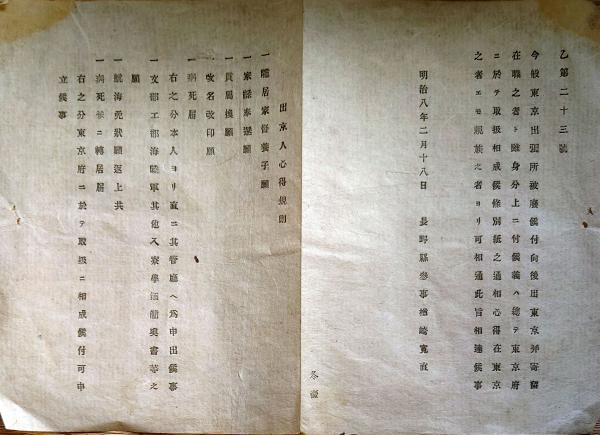 乙第二十三號
今般東京出張所被廢候付向後出東京并寄留
在職之者ト雖身分上ニ付候義ハ總テ東京府
ニ於テ取扱相成候條別紙之通相心得在東京
之者エモ親族之者ヨリ可相通此旨相達候事
明治八年二月十八日 長野縣參事楢崎寬直
出京人心得規則
一隱居家督養子願
一家祿奉還願
一貫屬換願
一改名改印願
一病死屆
右之分本人ヨリ直ニ其管廳ヘ爲申出候事
一文部工部海陸軍其他入寮學願書奧書等之
願
一航海免狀願返上共
一病死并ニ轉居屆
右之分東京府ニ於テ取扱ニ相成候付可申
立候事